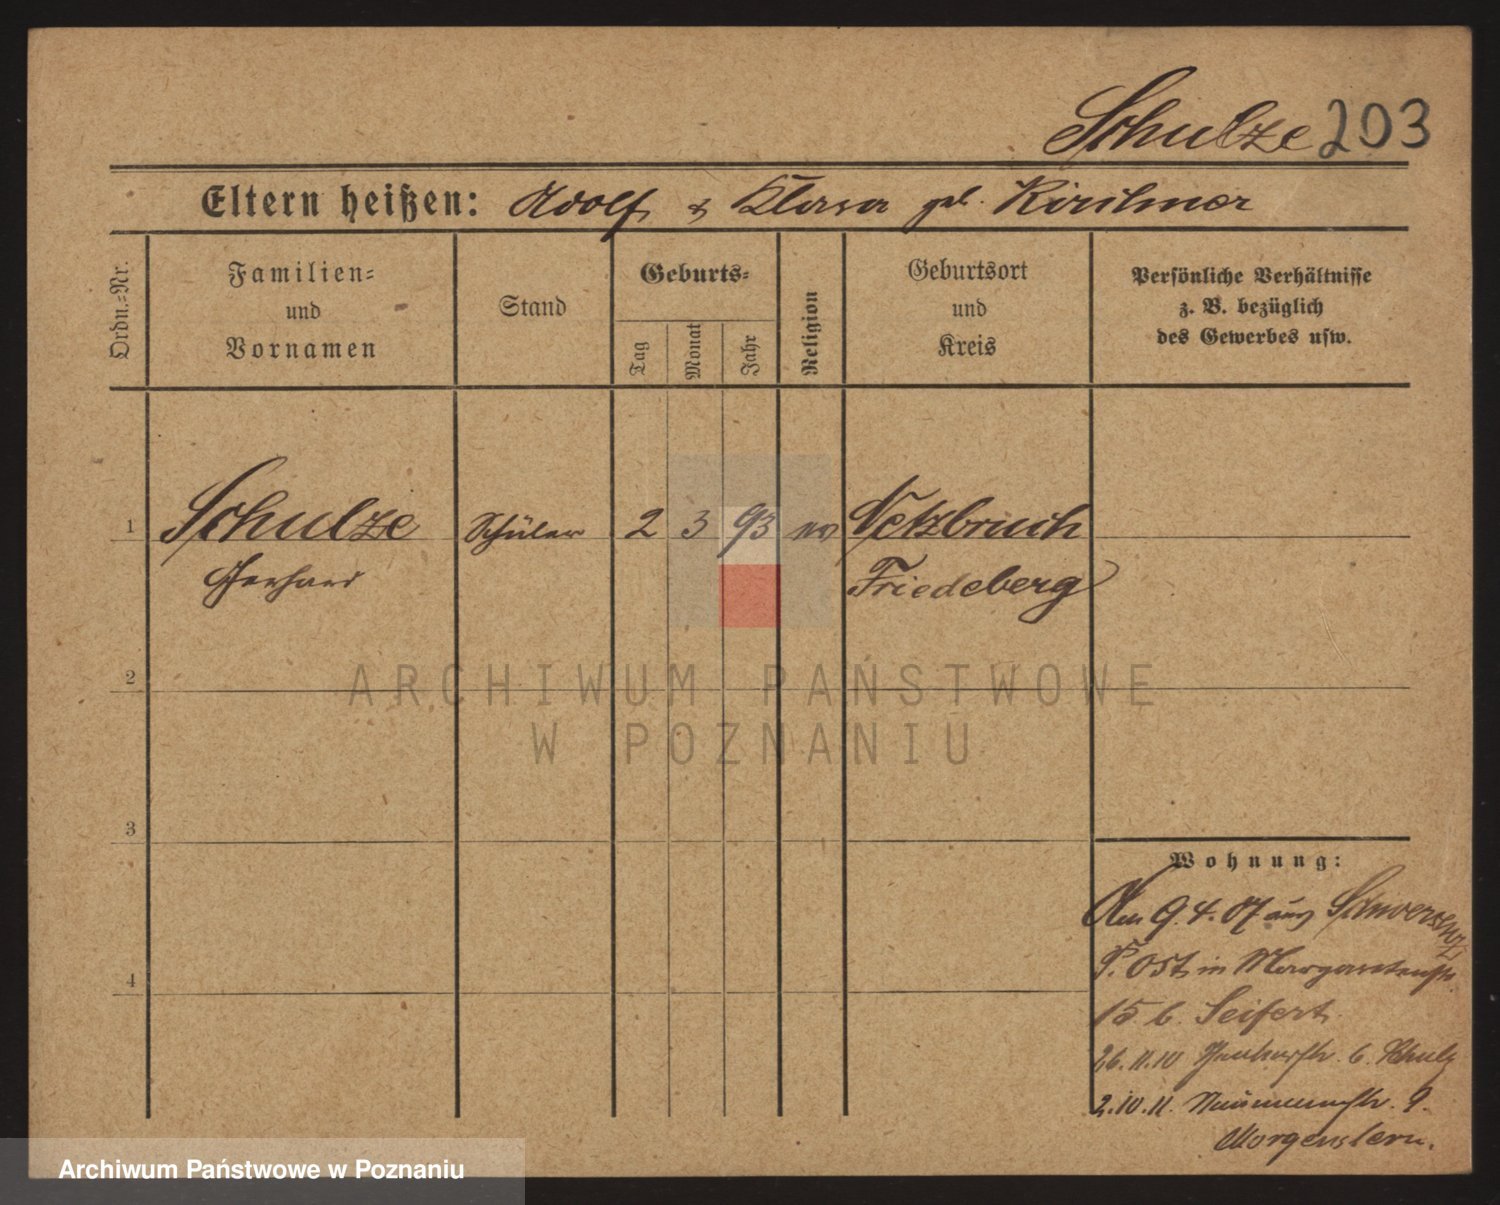 Schulze 203
Eltern heißen: Adolf & Klara geb. Kirchner
Ordn.=Nr.
Familien=
und
Vornamen
Stand
Geburts=
Tag
Monat
Jahr
Religion
Geburtsort
und
Kreis
Persönliche Verhältnisse
z. B. bezüglich
des Gewerbes usw.
1 Schulze Schüler 2 3 93 ev Netzbruch
Gerhard Friedeberg
2
3
4
Wohnung:
Den 9.4.07 aus Schwersenz
P. Ost, in Margaretenstr.
15 b. Seifert
26.11.10 b. Schulz
2.10.11. Naumannstr. 9.
Morgenstern.
ARCHIWUM PAŃSTWOWE
W POZNANIU
Archiwum Państwowe w Poznaniu